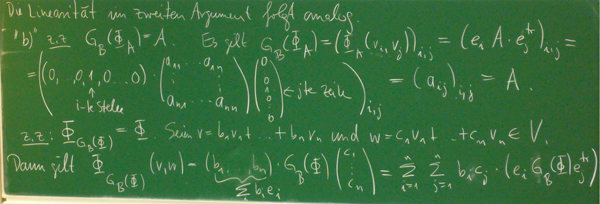 Die Linearität im zweiten Argument folgt analog.
"b)" z.z G_B(Φ_A) = A. Es gilt G_B(Φ_A) = (Φ_A(v_i, v_j))_{i,j} = (e_i A · e_j^{tr})_{i,j} =
= ((0, ..0,1,0 ...0) · (a_{11} ... a_{1n} ⋮ ⋮ a_{n1} ... a_{nn}) (0 0 1 0 0) ← jte Zeile)_{i,j} = (a_{ij})_{i,j} = A.
i-te Stelle
z.z: Φ_{G_B(Φ)} = Φ. Seien v = b_1v_1 + ... + b_nv_n und w = c_1v_1 + ... + c_nv_n ∈ V.
Dann gilt Φ_{G_B(Φ)} (v,w) = (b_1, ..., b_n) · G_B(Φ) (c_1 ⋮ c_n) = Σ_{i=1}^n Σ_{j=1}^n b_i c_j · (e_i G_B(Φ) e_j^{tr})
Σ b_i e_i